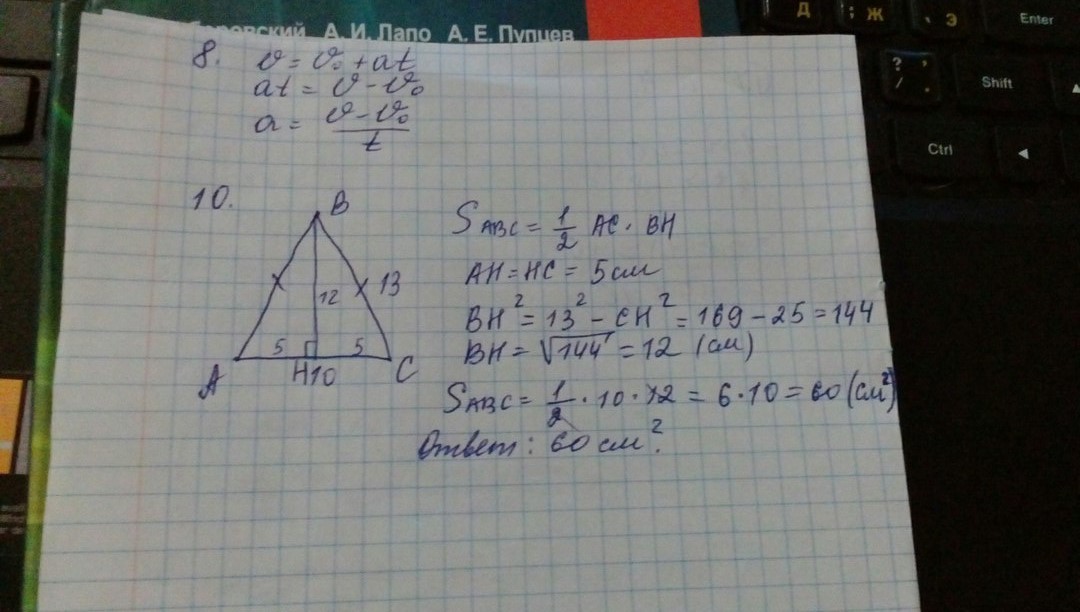 А. И. Лапо А. Е. Пупцев
Д
; Ж
, Э
Enter
? ,
/ .
Shift
Ctrl
8. v = v₀ + at
at = v - v₀
a = (v - v₀)/t
10.
B
12
13
5
5
A
H 10
C
S ABC = 1/2 AC · BH
AH = HC = 5 см
BH² = 13² - CH² = 169 - 25 = 144
BH = √144 = 12 (см)
S ABC = 1/2 · 10 · 12 = 6 · 10 = 60 (см²)
Ответ: 60 см².